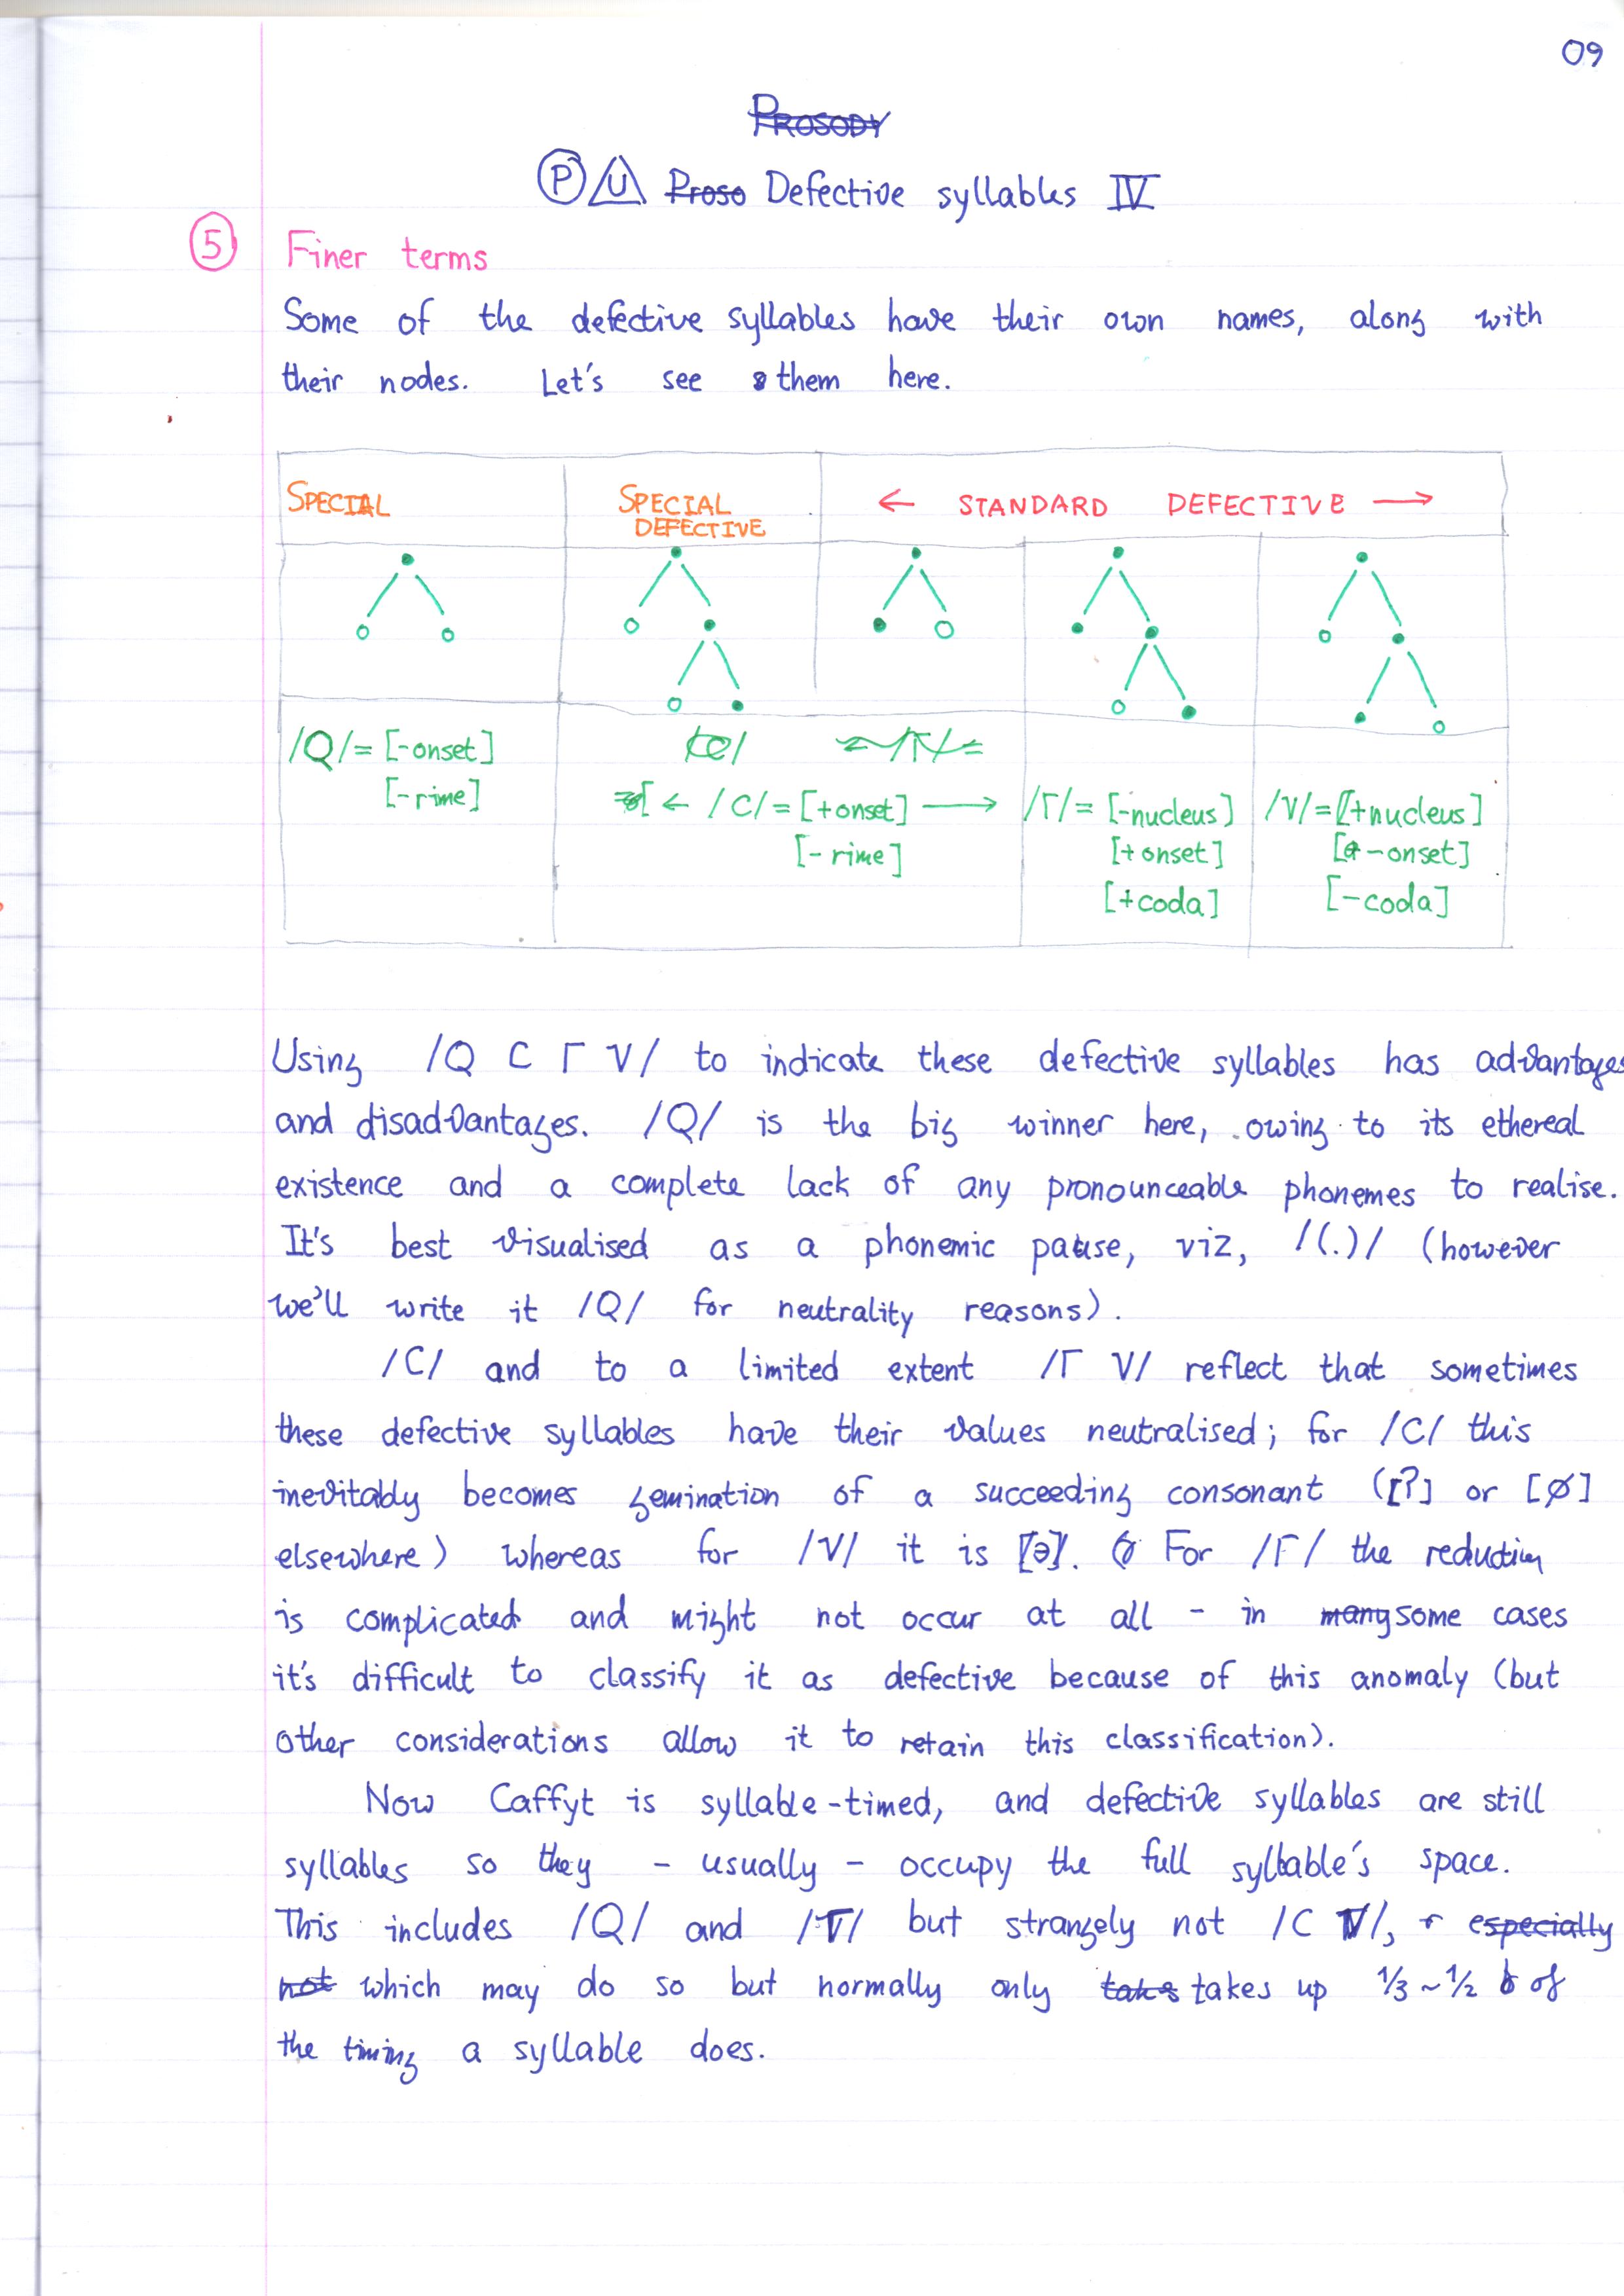 09
PROSODY
Ⓟ U Proso Defective syllables IV
⑤ Finer terms
Some of the defective syllables have their own names, along with
their nodes. Let's see them here.
SPECIAL
SPECIAL DEFECTIVE
← STANDARD DEFECTIVE →
/Q/= [-onset]
[-rime]
← /C/= [+onset] →
[-rime]
/Γ/= [-nucleus]
[+onset]
[+coda]
/V/= [+nucleus]
[-onset]
[-coda]
Using /Q C Γ V/ to indicate these defective syllables has advantages
and disadvantages. /Q/ is the big winner here, owing to its ethereal
existence and a complete lack of any pronounceable phonemes to realise.
It's best visualised as a phonemic pause, viz, /(.)/ (however
we'll write it /Q/ for neutrality reasons).
/C/ and to a limited extent /Γ V/ reflect that sometimes
these defective syllables have their values neutralised; for /C/ this
inevitably becomes gemination of a succeeding consonant ([ʔ] or [ø]
elsewhere) whereas for /V/ it is [ə]. For /Γ/ the reduction
is complicated and might not occur at all - in many some cases
it's difficult to classify it as defective because of this anomaly (but
other considerations allow it to retain this classification).
Now Caffyt is syllable-timed, and defective syllables are still
syllables so they - usually - occupy the full syllable's space.
This includes /Q/ and /Γ/ but strangely not /C V/, especially
not which may do so but normally only takes takes up 1/3 ~ 1/2 of
the timing a syllable does.